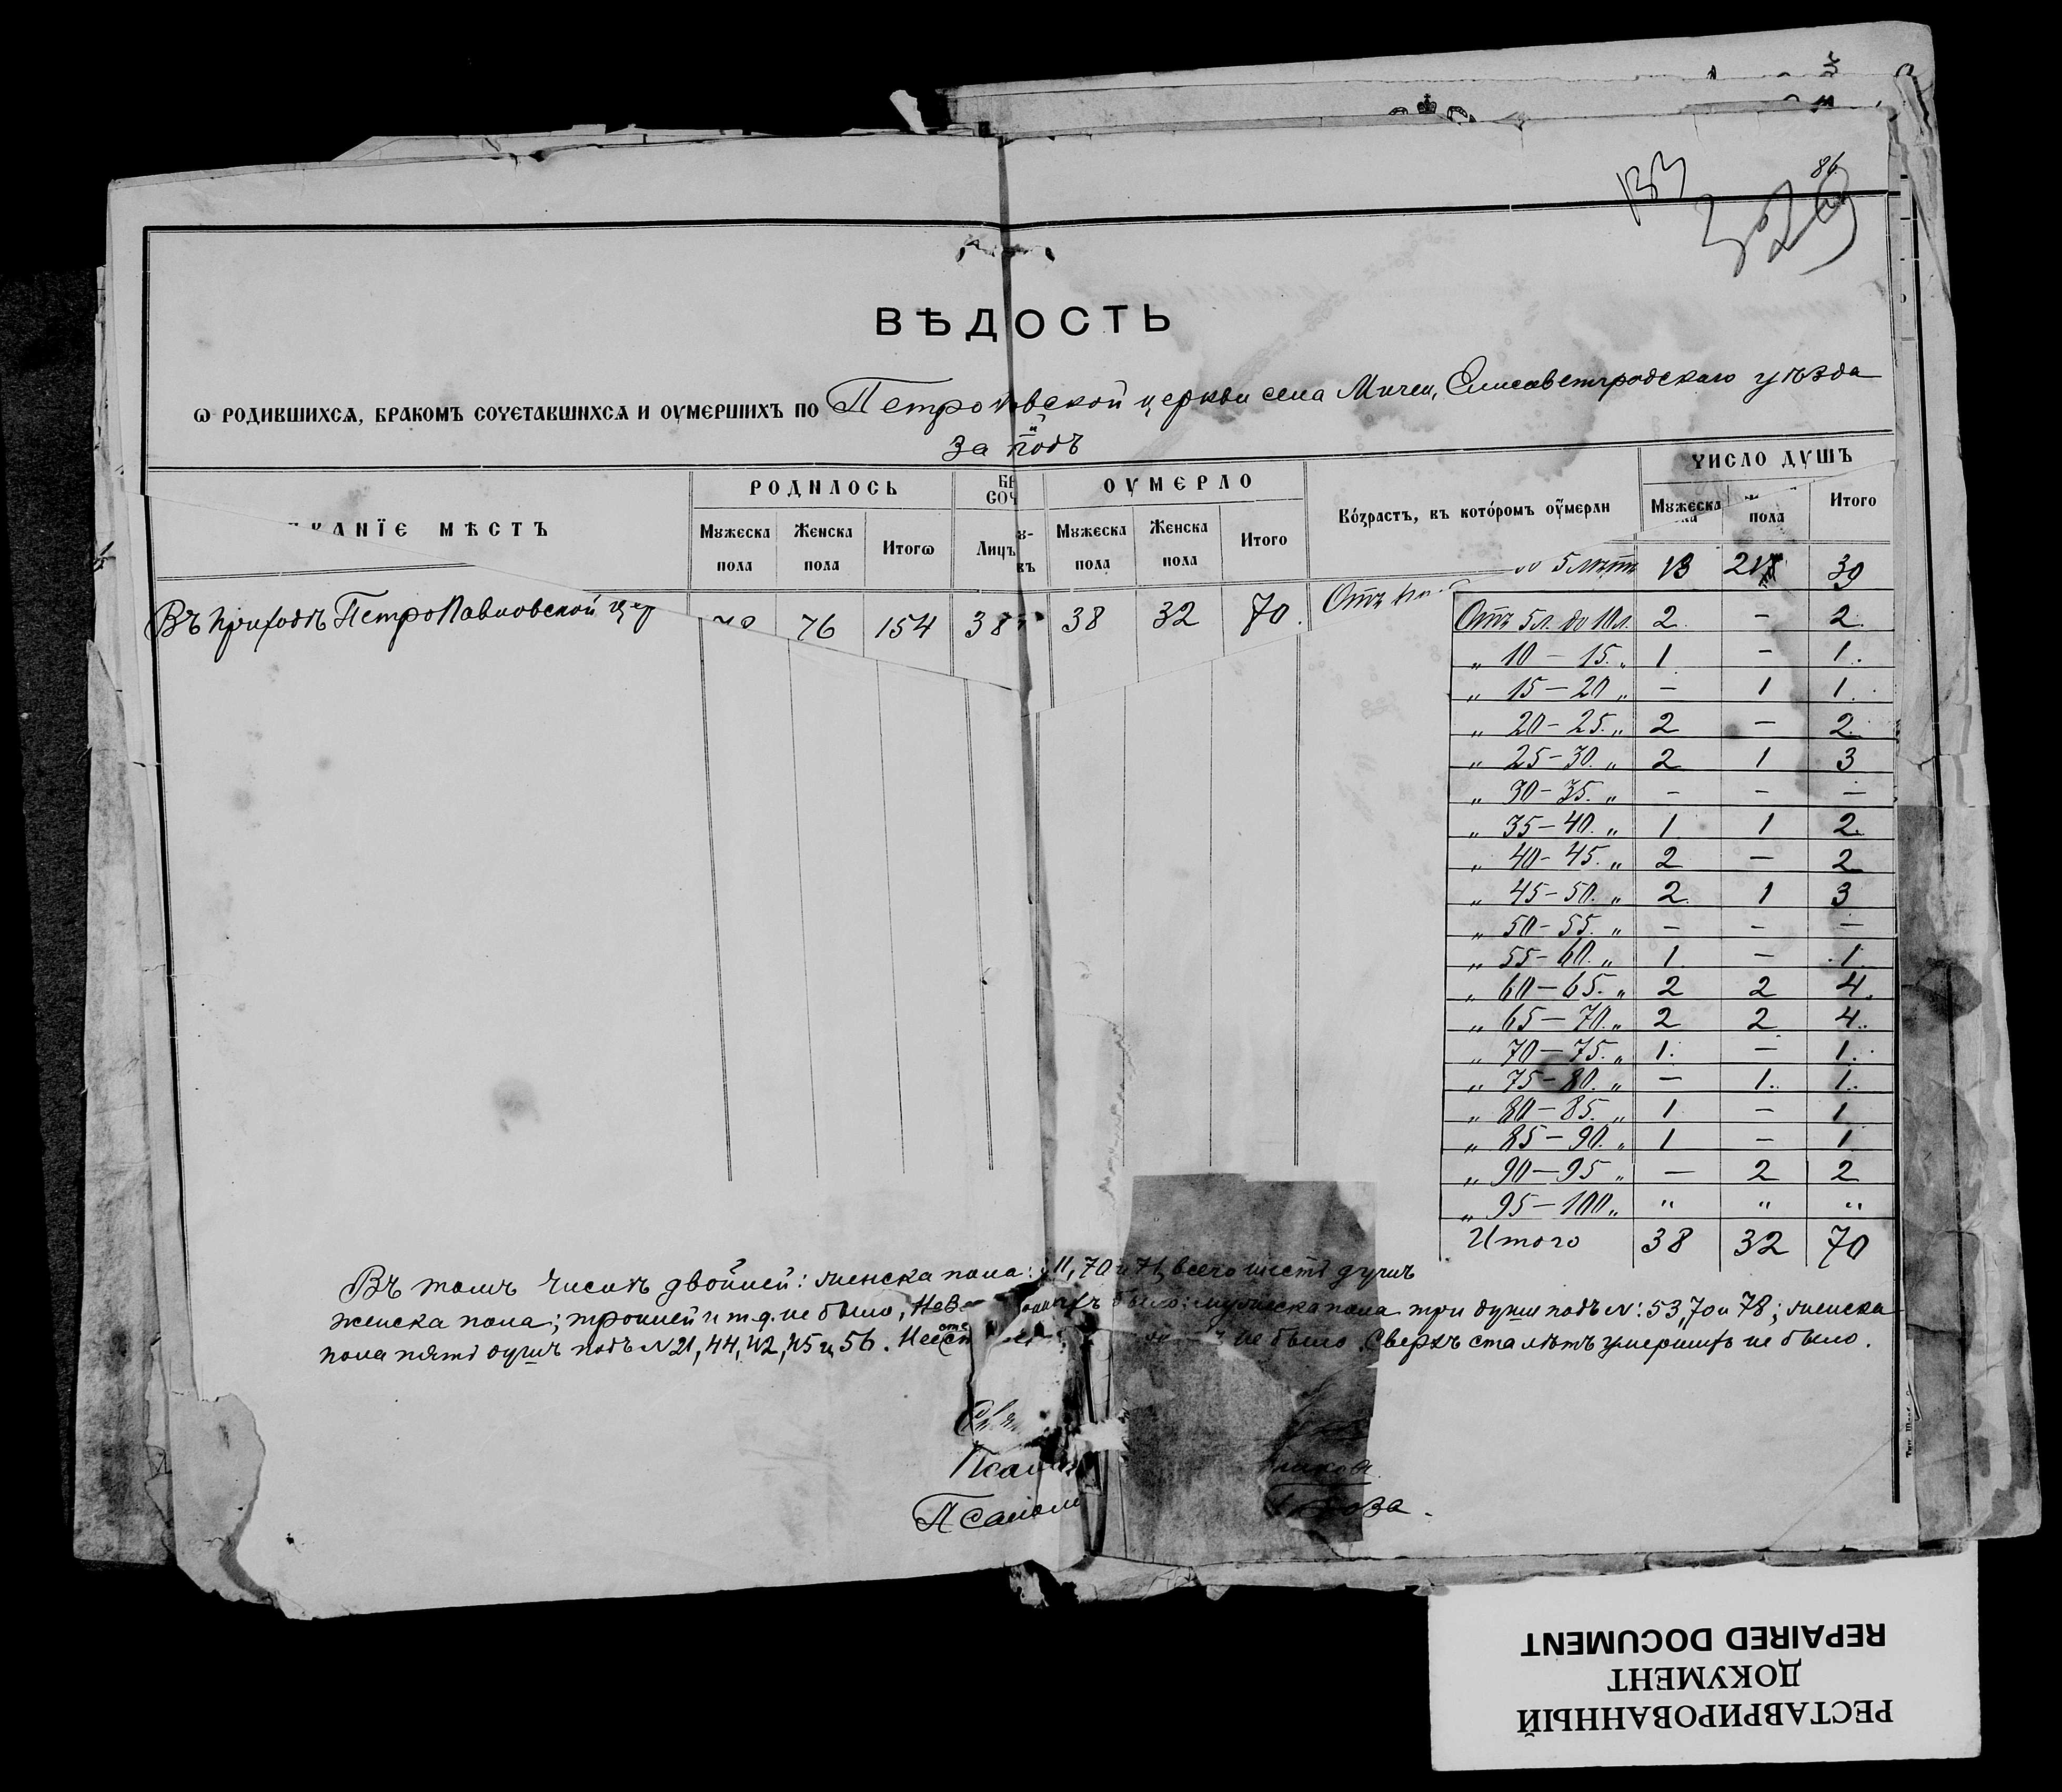 133
86
ВѢДОСТЬ
ѡ РОДИВШИХСѦ, БРАКОМЪ СОЧЕТАВШИХСѦ И ОУМЕРШИХЪ ПО Петро вской церкви села Мигеи, Елисаветградскаго уѣзда
За годъ
АНЇЕ МѢСТЪ
РОДИЛОСЬ
Мꙋжеска пола
Женска пола
Итогѡ
БР
СОЧ
Лицъ
ОУМЕРЛО
Мꙋжеска пола
Женска пола
Итого
Во́зрастъ, въ кото́ромъ оу҆́мерли
ЧИСЛО ДꙊШЪ
Мꙋжеска
пола
Итого
Въ приходѣ ПетроПавловской цер 76 154 38 38 32 70
Отъ до 5 лѣтъ 39
Отъ 5 л. до 10 л. 2 — 2.
„ 10 — 15. „ 1 — 1.
„ 15 — 20 „ — 1 1.
„ 20 — 25. „ 2 — 2.
„ 25 — 30. „ 2 1 3
„ 30 — 35. „ — — —
„ 35 — 40. „ 1 1 2.
„ 40 — 45. „ 2 — 2
„ 45 — 50. „ 2. 1 3
„ 50 — 55. „ — — —
„ 55 — 60. „ 1 — 1.
„ 60 — 65. „ 2 2 4.
„ 65 — 70. „ 2 2 4.
„ 70 — 75. „ 1. — 1.
„ 75 — 80. „ — 1. 1.
„ 80 — 85. „ 1 — 1
„ 85 — 90. „ 1 — 1
„ 90 — 95 „ — 2 2
„ 95 — 100 „ „ „ „
Итого 38 32 70
Въ томъ числѣ двойней: женска пола: 11, 70 и 71, всего шесть душъ
женска пола; тройней и т.д. не было, было: мужеска пола три души подъ №: 53, 70 и 78; женска
пола пять душъ подъ № 21, 44, 42, 45 и 56. не было. Сверхъ ста лѣтъ умершихъ не было.
Псалом
РЕСТАВРИРОВАННЫЙ
ДОКУМЕНТ
REPAIRED DOCUMENT